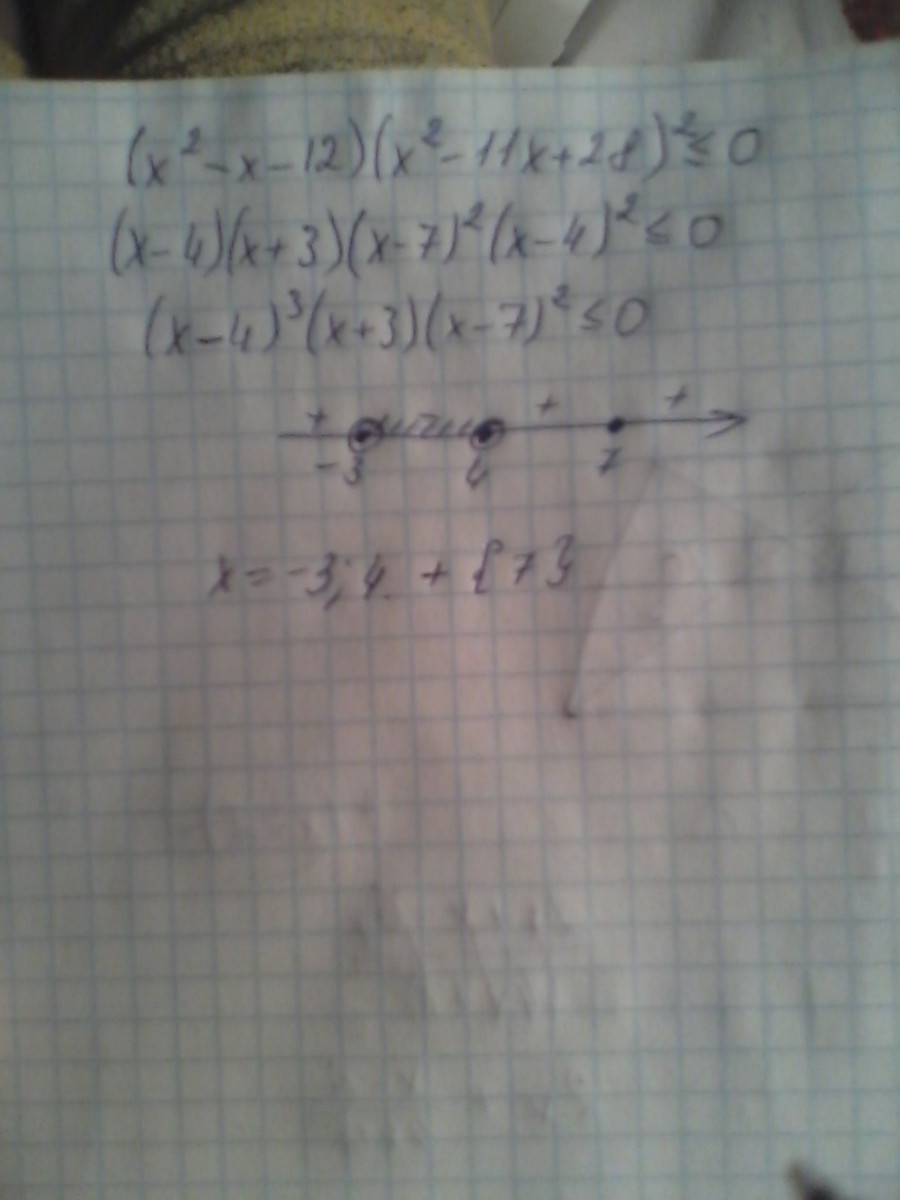 (x²-x-12)(x²-11x+28)²≤0
(x-4)(x+3)(x-7)²(x-4)²≤0
(x-4)³(x+3)(x-7)²≤0
+ + +
-3 4 7
x=-3;4 + {7}